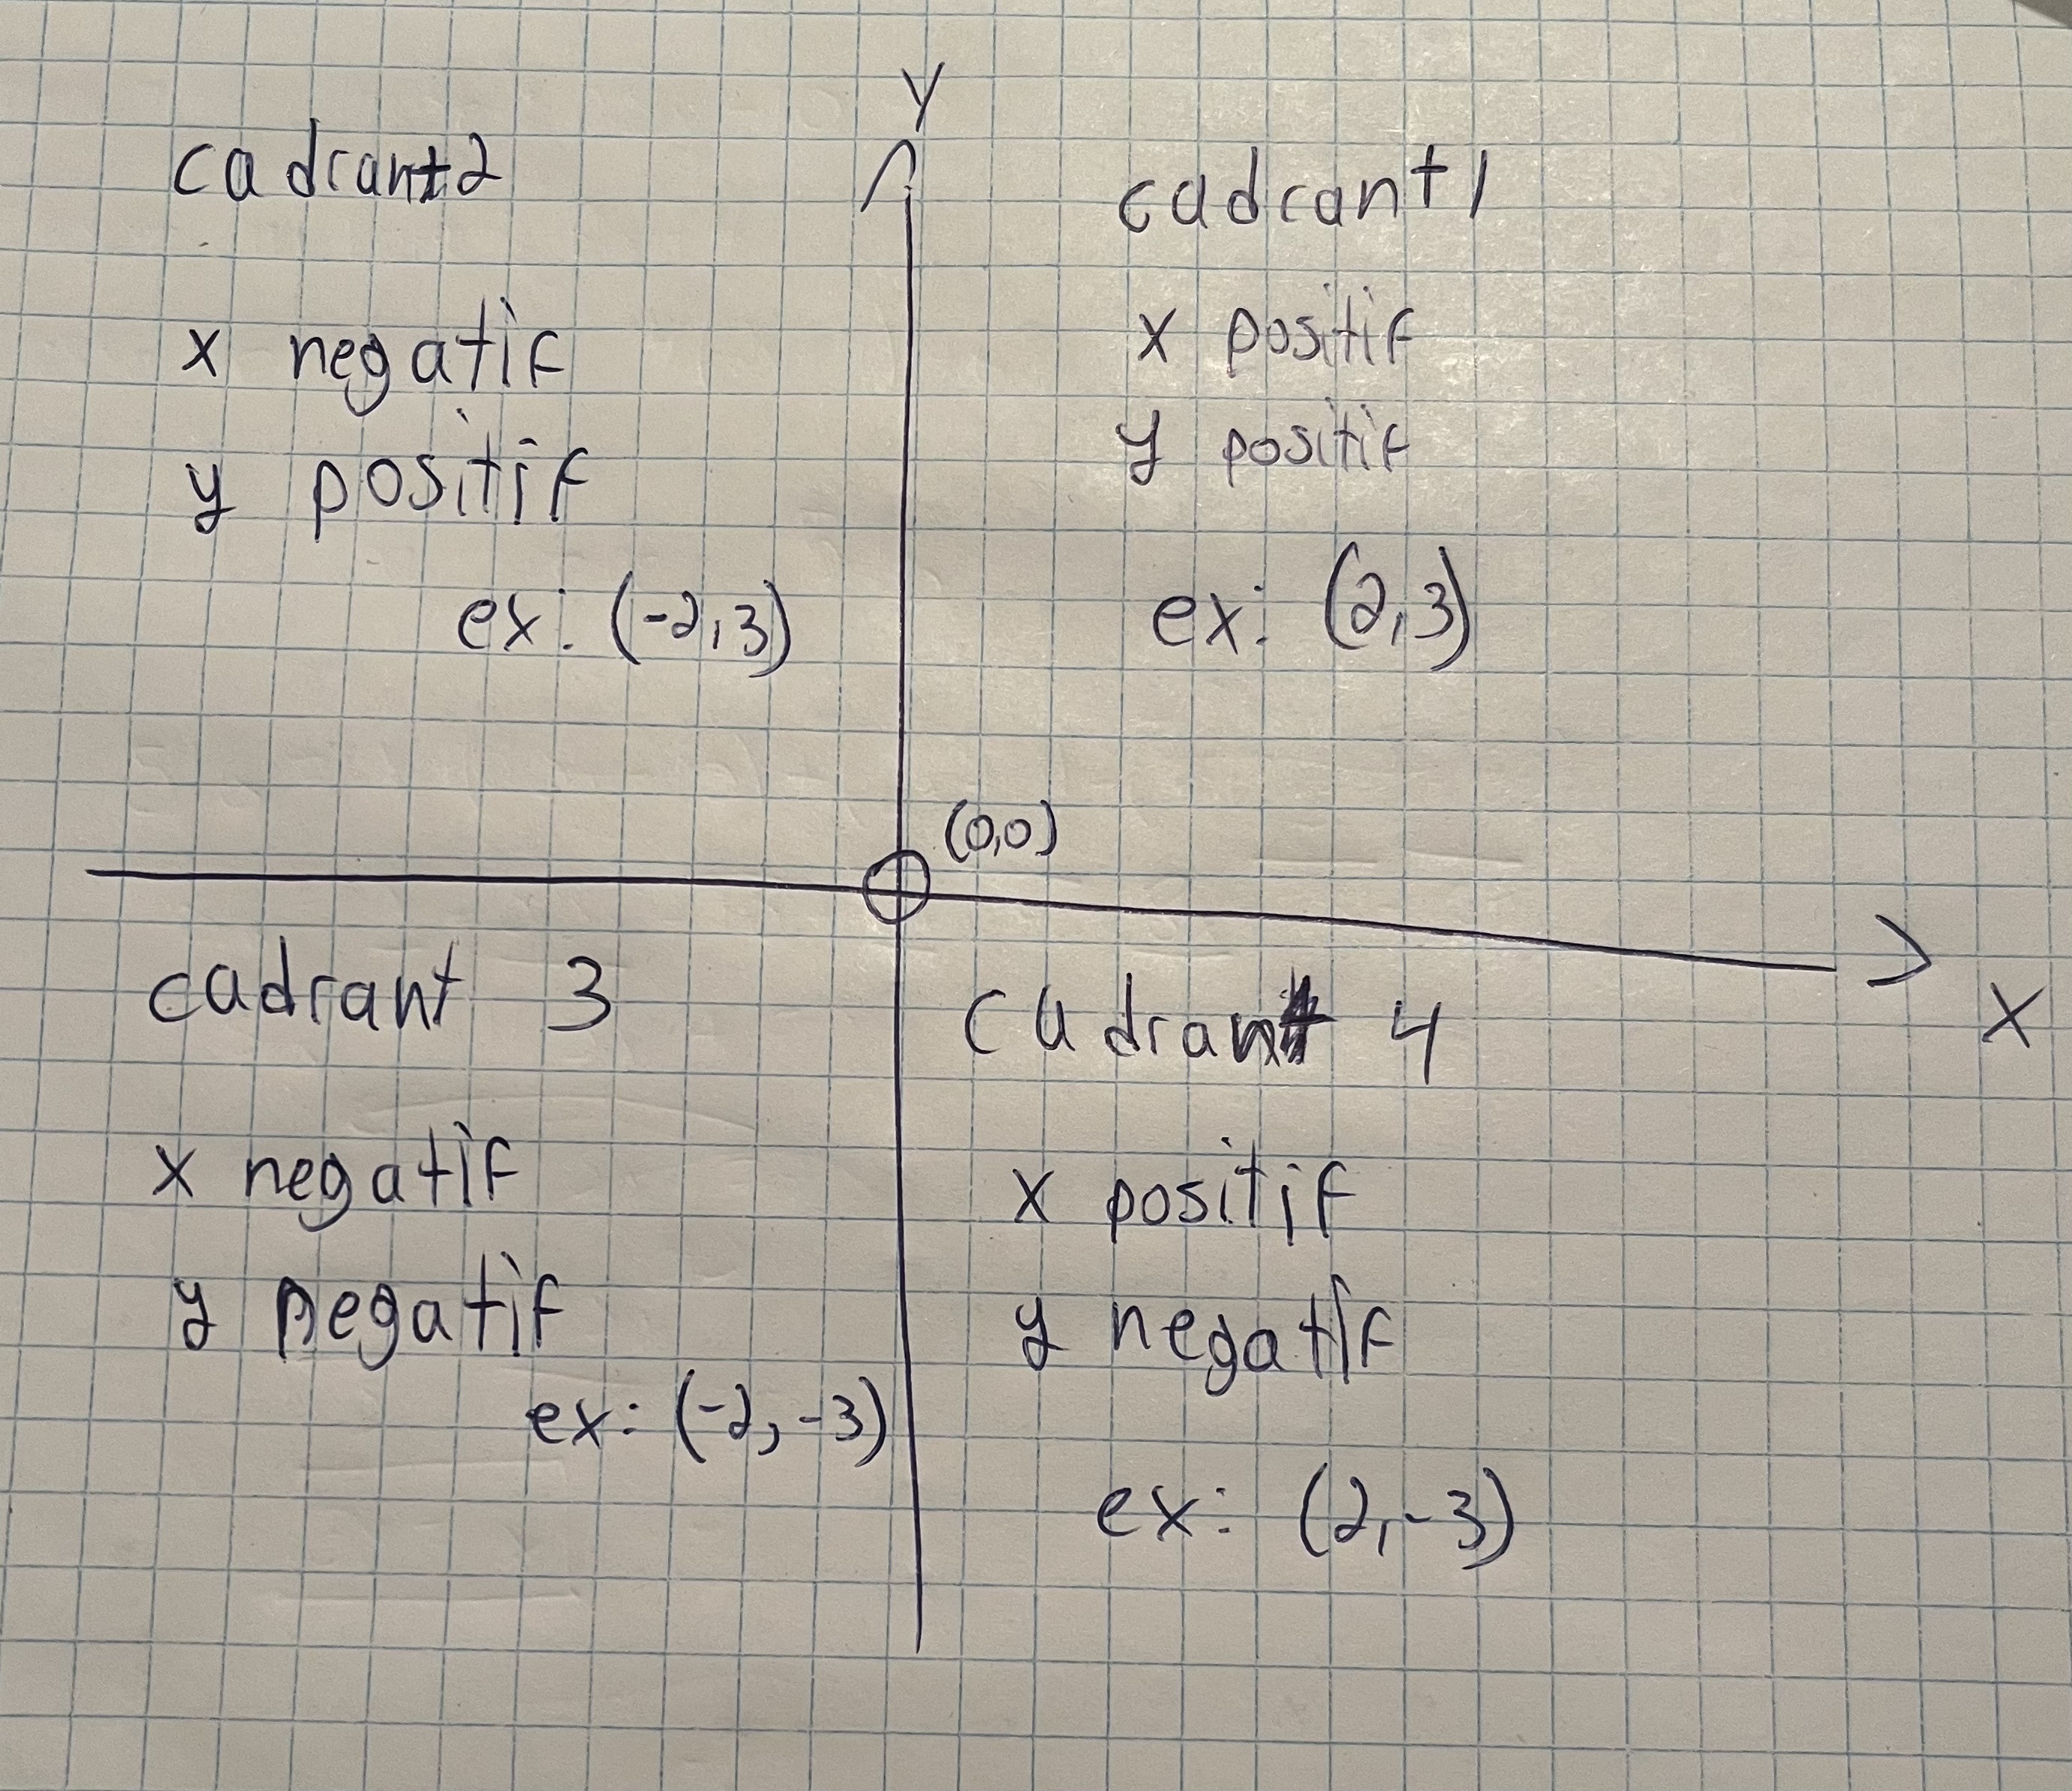 Y
cadrant 2
x negatif
y positif
ex: (-2,3)
cadrant 1
x positif
y positif
ex: (2,3)
(0,0)
X
cadrant 3
x negatif
y negatif
ex: (-2,-3)
cadrant 4
x positif
y negatif
ex: (2,-3)